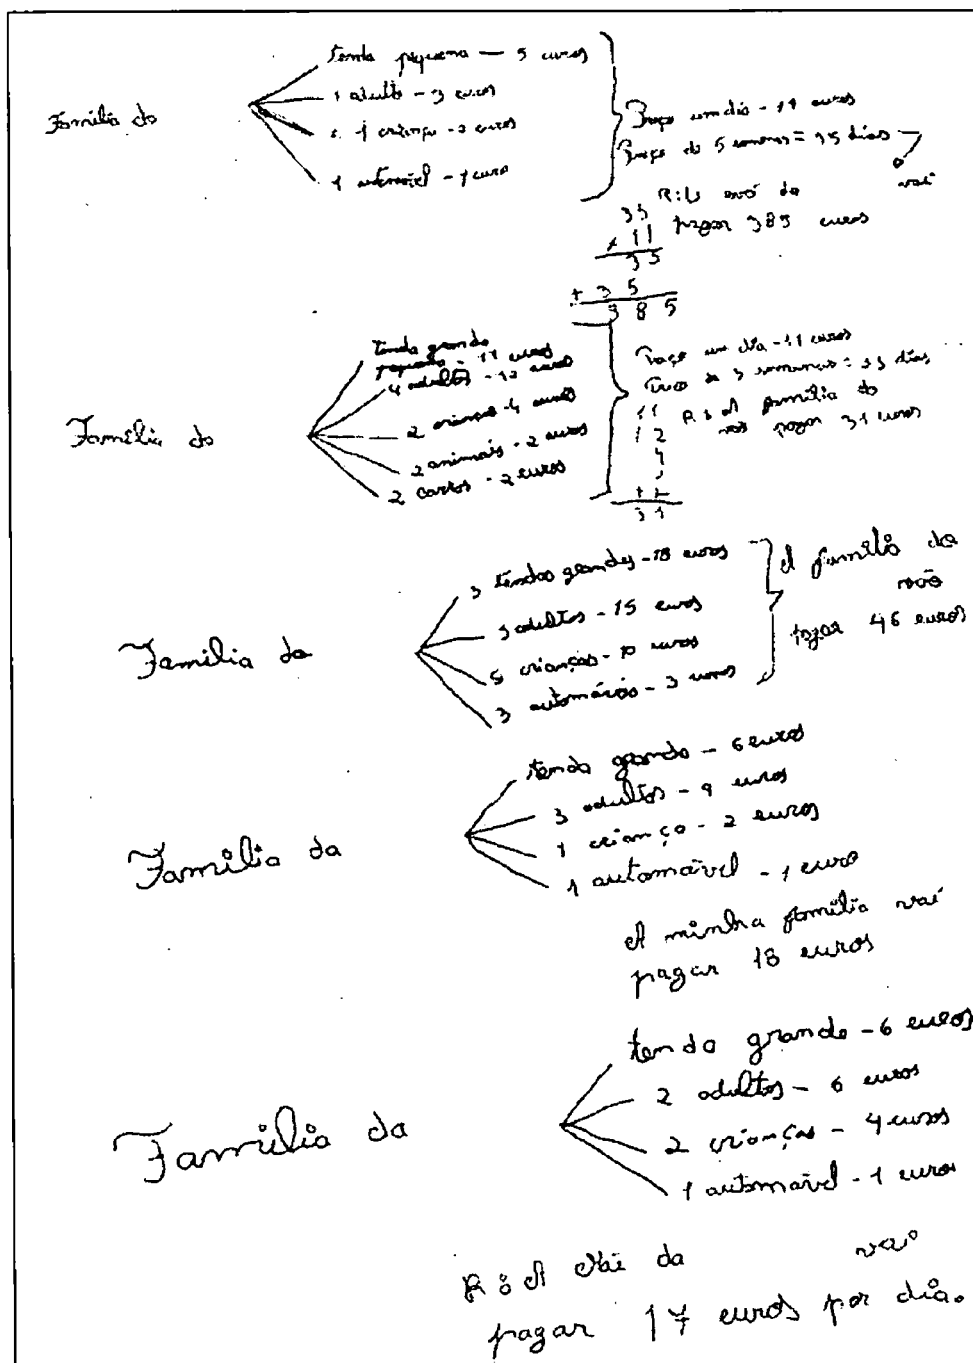 Família do
tenda pequena — 5 euros
1 adulto - 3 euros
1 criança - 2 euros
1 automóvel - 1 euro
Preço um dia - 11 euros
Preço de 5 semanas = 35 dias
vai
R:
pagar 385 euros
35
x 11
35
+ 35
385
Família do
tenda grande
pequena - 11 euros
4 adultos - 12 euros
2 crianças - 4 euros
2 animais - 2 euros
2 carros - 2 euros
Preço um dia - 11 euros
11
12
4
2
+ 2
31
R: A família do
pagar 31 euros
Família da
3 tendas grandes - 18 euros
5 adultos - 15 euros
5 crianças - 10 euros
3 automóveis - 3 euros
A família da
vão
pagar 46 euros
Família da
tenda grande - 6 euros
3 adultos - 9 euros
1 criança - 2 euros
1 automóvel - 1 euro
A minha família vai
pagar 18 euros
Família da
tenda grande - 6 euros
2 adultos - 6 euros
2 crianças - 4 euros
1 automóvel - 1 euro
R: A Mãe da vai
pagar 17 euros por dia.